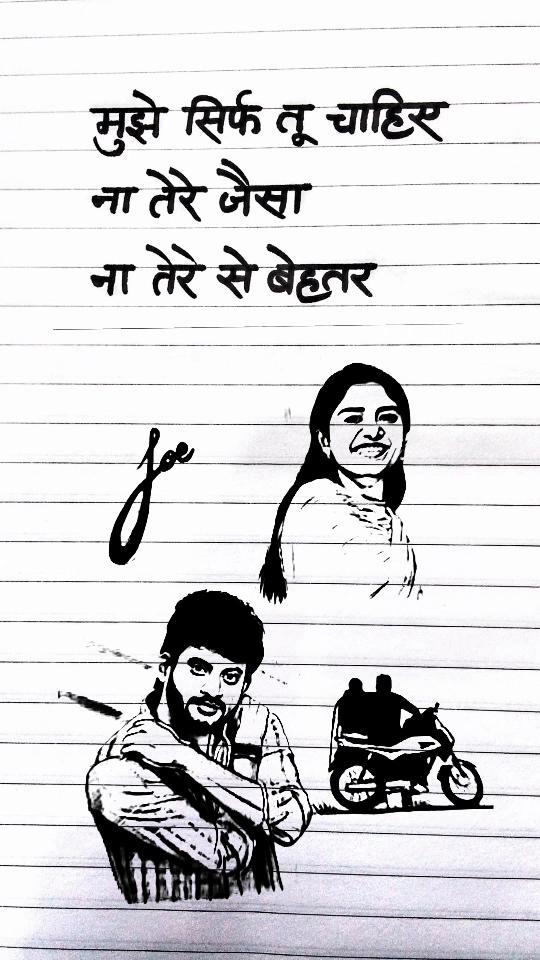 मुझे सिर्फ तू चाहिए
ना तेरे जैसा
ना तेरे से बेहतर
Joe